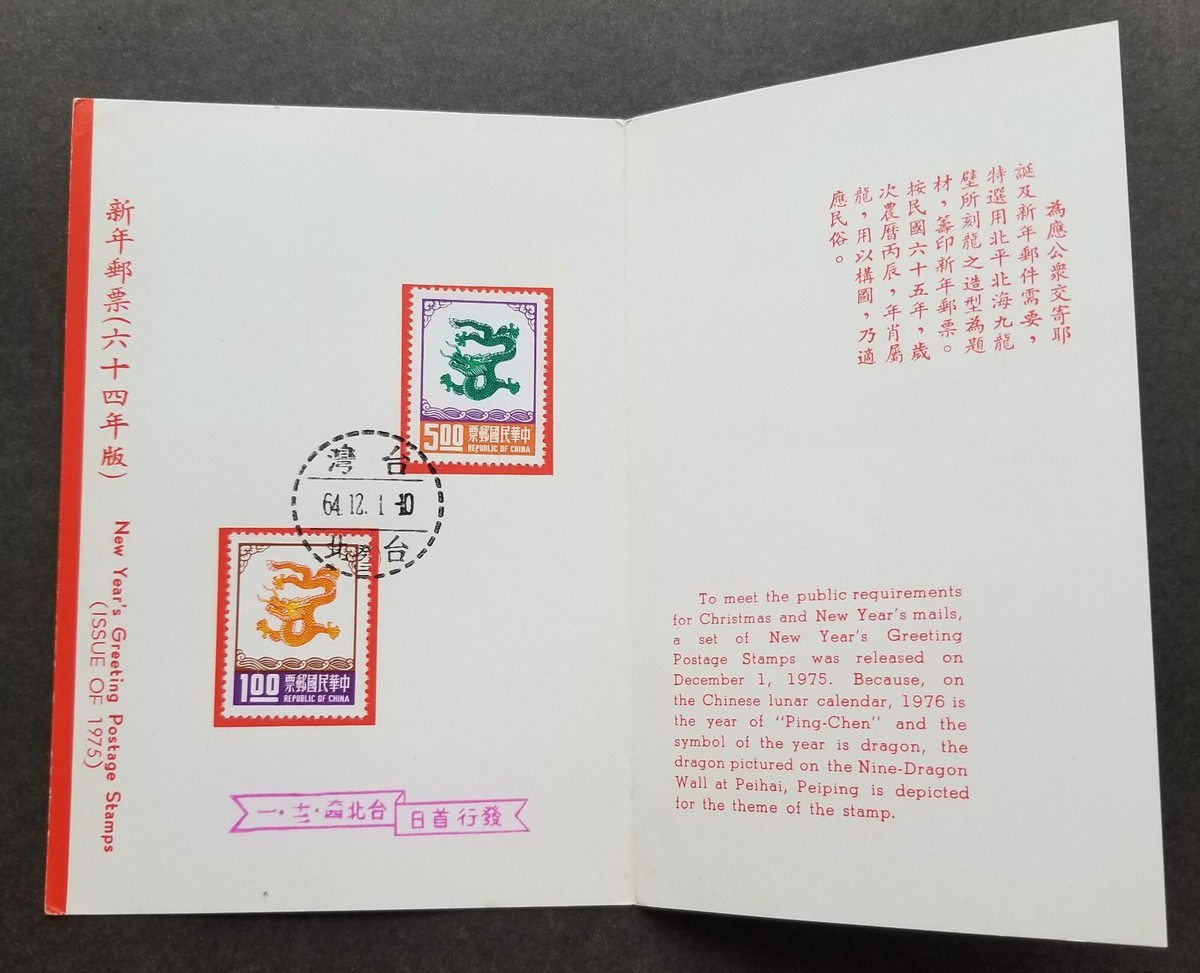 新年郵票(六十四年版)
New Year's Greeting Postage Stamps
(ISSUE OF 1975)
5.00 票郵國民華中
REPUBLIC OF CHINA
灣 台
64.12.1-10
北 台
1.00 票郵國民華中
REPUBLIC OF CHINA
一・十二・六四 台北
發行首日
為應公衆交寄耶
誕及新年郵件需要，
特選用北平北海九龍
壁所刻龍之造型為題
材，籌印新年郵票。
按民國六十五年，歲
次農曆丙辰，年肖屬
龍，用以構圖，乃適
應民俗。
To meet the public requirements
for Christmas and New Year's mails,
a set of New Year's Greeting
Postage Stamps was released on
December 1, 1975. Because, on
the Chinese lunar calendar, 1976 is
the year of "Ping-Chen" and the
symbol of the year is dragon, the
dragon pictured on the Nine-Dragon
Wall at Peihai, Peiping is depicted
for the theme of the stamp.